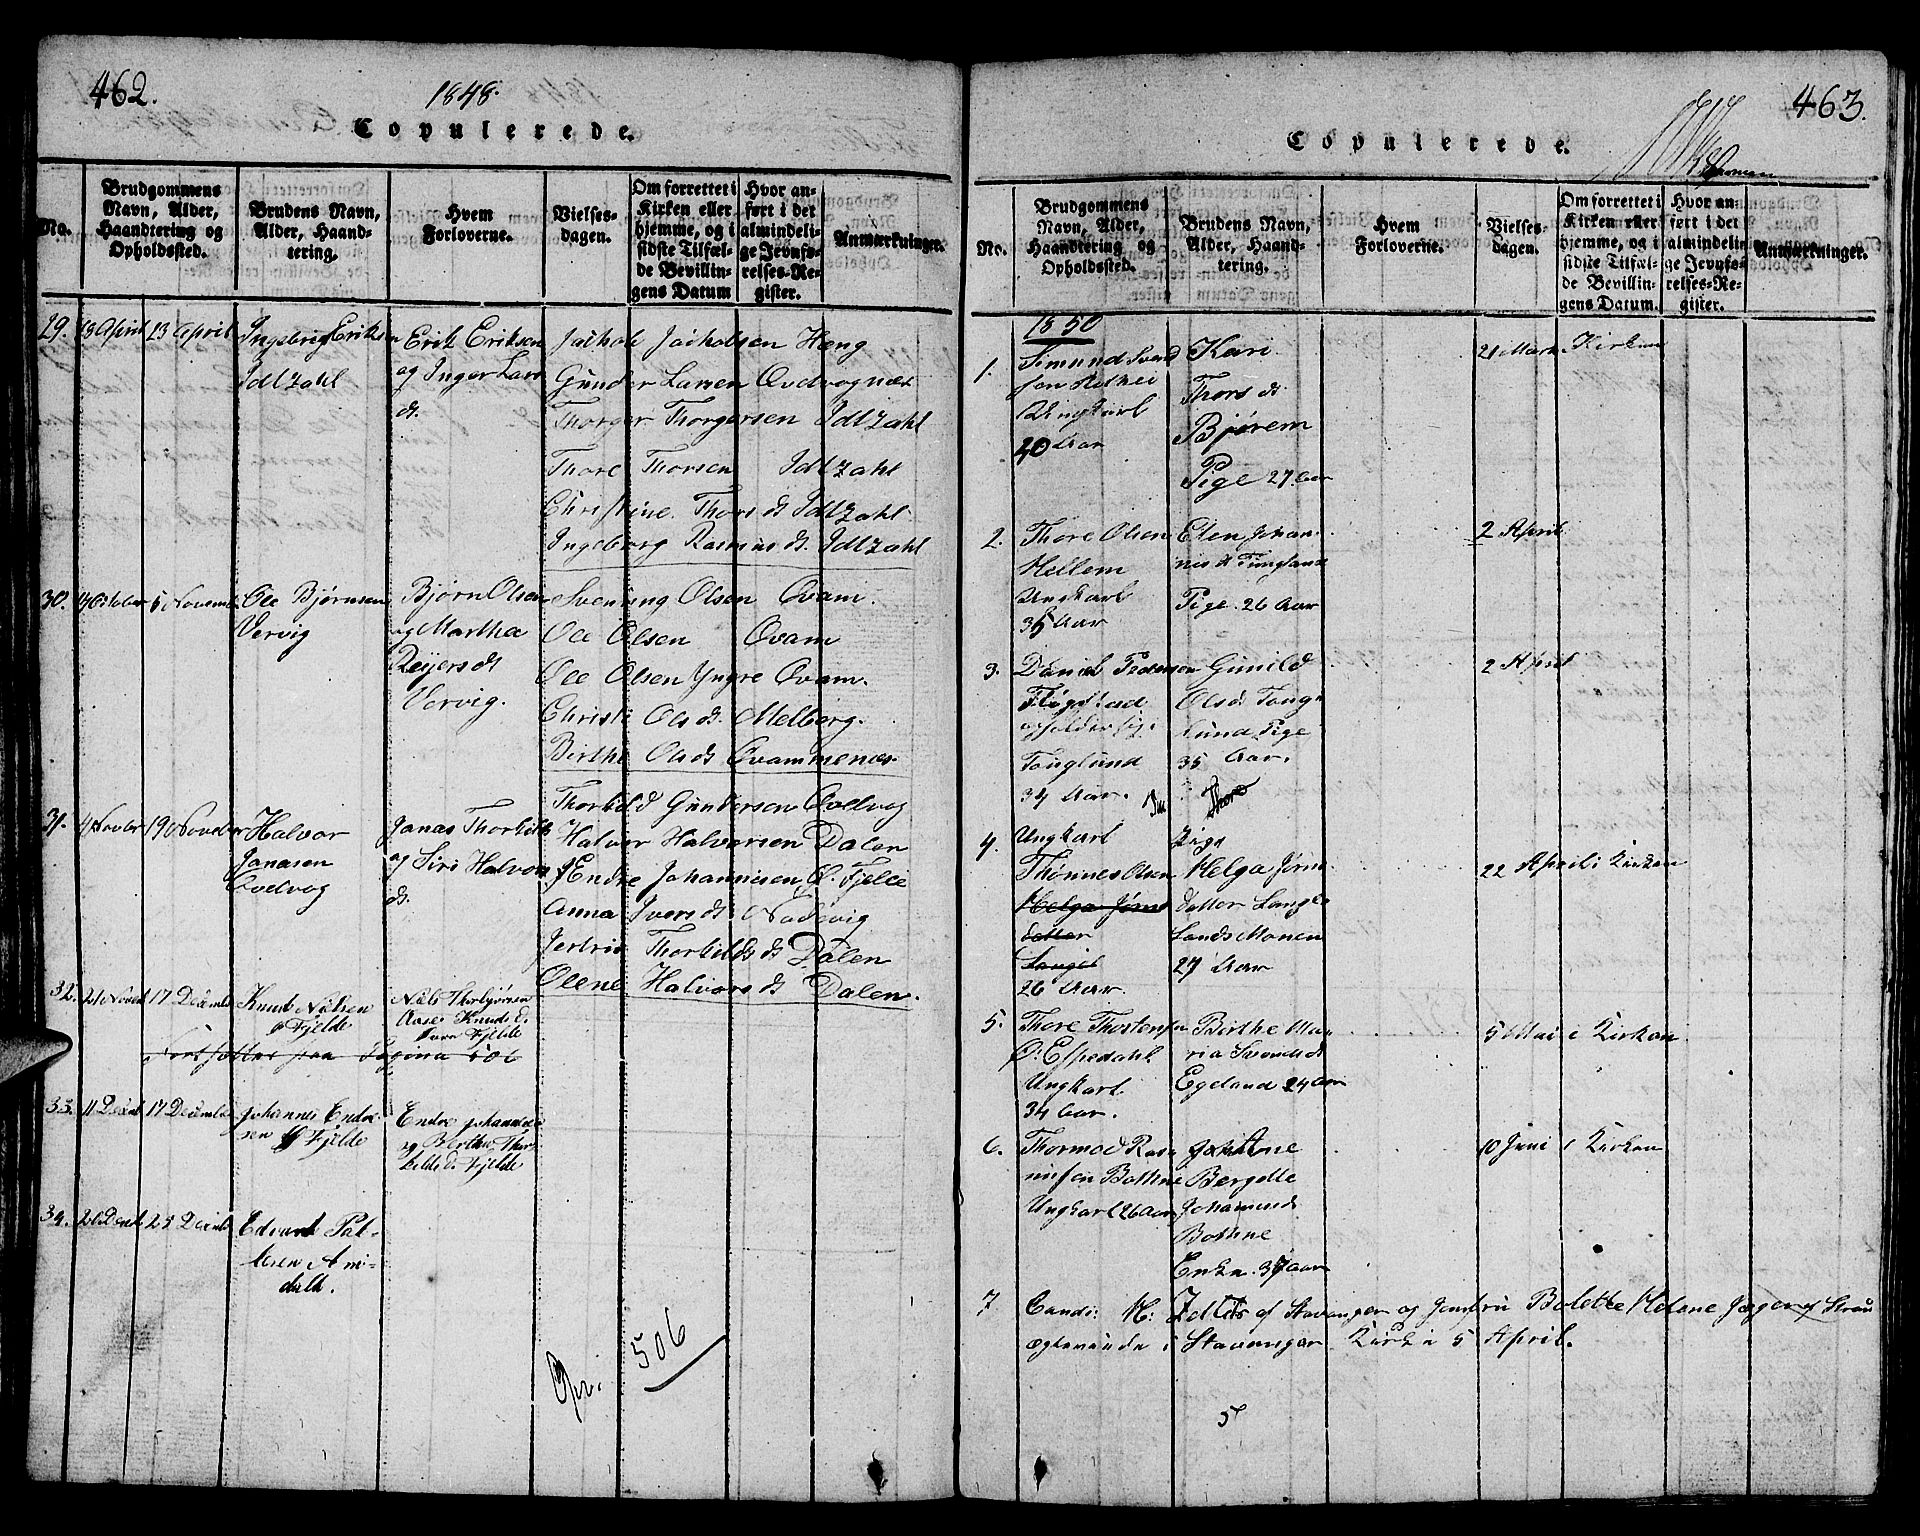 462.
1848.
Copulerede.
No.
Brudgommens Navn, Alder, Haandtering og Opholdssted.
Brudens Navn, Alder, Haandtering.
Hvem Forloverne.
Vielses-dagen.
Om forrettet i Kirken eller hjemme, og i sidste Tilfælde Bevillingens Datum
Hvor anført i det almindelige Jevnførelses-Register.
Anmærkninger.
29. 13 April 13 April Ingebrig Eriksen
Idtzahl
Erik Eriksen
og Inger Lars
d.
Jaihob Jaihobsen Hæng
Gunder Larsen Qvdvognæs
Thorger Thorgersen Idtzahl
Thore Thorsen Idtzahl
Christine Thors d. Idtzahl
Ingeborg Rasmus d. Idtzahl
30. October 5 Novemb Ole Bjørnsen
Vervig
Bjørn Olsen
og Martha
Reijers d.
Vervig.
Svenning Olsen Qvam.
Ole Olsen Qvam
Ole Olsen Yngre Qvam.
Christi Ols d. Melberg.
Birthe Ols d. Qvammenæs
31. 4 Novbr 19 Novbr Halvor
Janasen
Qvdvog
Janas Thorkilds
og Siri Halvors
d.
Thorkild Gundersen Qvdvog
Halvor Halversen Dalen
Endre Johannesen Ø. Fjelle
Anna Ivers d. Nadvig
Jertrie Thorkilds d. Dalen
Olene Halvors d. Dalen.
32. 21 Novbr 17 Decemb Knud Nielsen
Fjelde
Niels Thorbjørsen
Aase Knuds d.
Fjelde
Fortsættes paa Pagina 506
33. 11 Decemb 17 Decemb Johannes Endre
sen Fjelde
Endre Johannesen
og Berthe Thor
kilds d. Fjelde
34. 21 Decb 25 Decemb Edvard Pal-
lesen Ami-
dahl.
506
463.
Copulerede.
No.
Brudgommens Navn, Alder, Haandtering og Opholdssted.
Brudens Navn, Alder, Haandtering.
Hvem Forloverne.
Vielses-dagen.
Om forrettet i Kirken eller hjemme, og i sidste Tilfælde Bevillingens Datum.
Hvor anført i det almindelige Jevnførelses-Register.
Anmærkninger.
1850
1. Simund Svend
sen Helhei
Ungkarl
40 Aar
Kari
Thors d.
Bjørem
Pige 27 Aar
21 Marts Kirken
2. Thore Olsen
Hellem
Ungkarl
35 Aar
Elen Johan
nis d. Tungland
Pige. 26 Aar
2 April
3. Daniel Pedersen
Fløgstad
opholder sig
Tonglund
34 Aar.
Gunild
Olsd. Tong
lund Pige
35 Aar.
2 April
4. Ungkarl
Thønnes Olsen
Helga Jørns
datter
Langel
26 Aar.
Pige
Helga Jørns
datter Langle
Lands Monen
27 Aar
22 April i Kirken
5. Thore Thostensen
Ø: Espedahl
Ungkarl
34 Aar.
Birthe Ma
ria Svends d.
Egeland 24 Aar
5 Mai i Kirken
6. Thormod Ras
musen Bothne
Ungkarl 26 Aar
Johanne
Bergelle
Johannesd.
Bothne
Enke. 37 Aar
10 Juni i Kirken
7 Candi: M: Idtis af Stavanger og Jomfru Bolette Helene Jæger af Strau
ægteviede i Stavanger Kirke i 5 April.